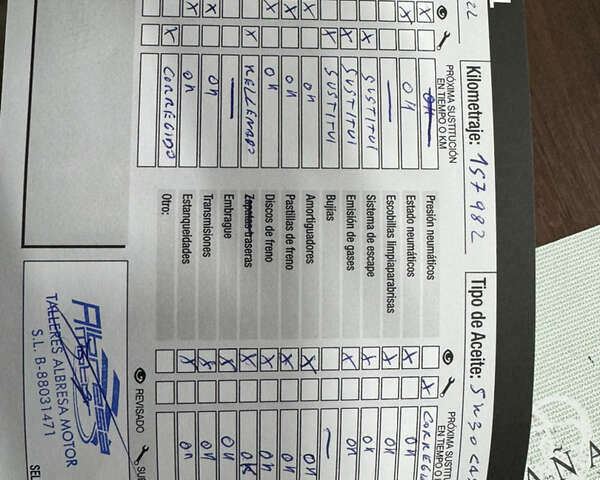 Kilometraje: 157982 Tipo de Aceite: 5W30
PRÓXIMA SUSTITUCIÓN
EN TIEMPO O KM
PRÓXIMA SUSTITUCIÓN
EN TIEMPO O KM
X OK Presión neumáticos X CORREGI
X OK Estado neumáticos X OK
Escobillas limpiaparabrisas X OK
X SUSTITUI Sistema de escape X OK
X SUSTITUI Emisión de gases X OK
X SUSTITUI Bujías
X OK Amortiguadores X OK
X OK Pastillas de freno X OK
X OK Discos de freno X OK
X RELLENADO Zapatas traseras X OK
Embrague X OK
X OK Transmisiones X OK
X OK Estanqueidades X OK
X CORREGIDO Otro:
REVISADO
Albresa
Motor
TALLERES ALBRESA MOTOR
S.L. B-88031471